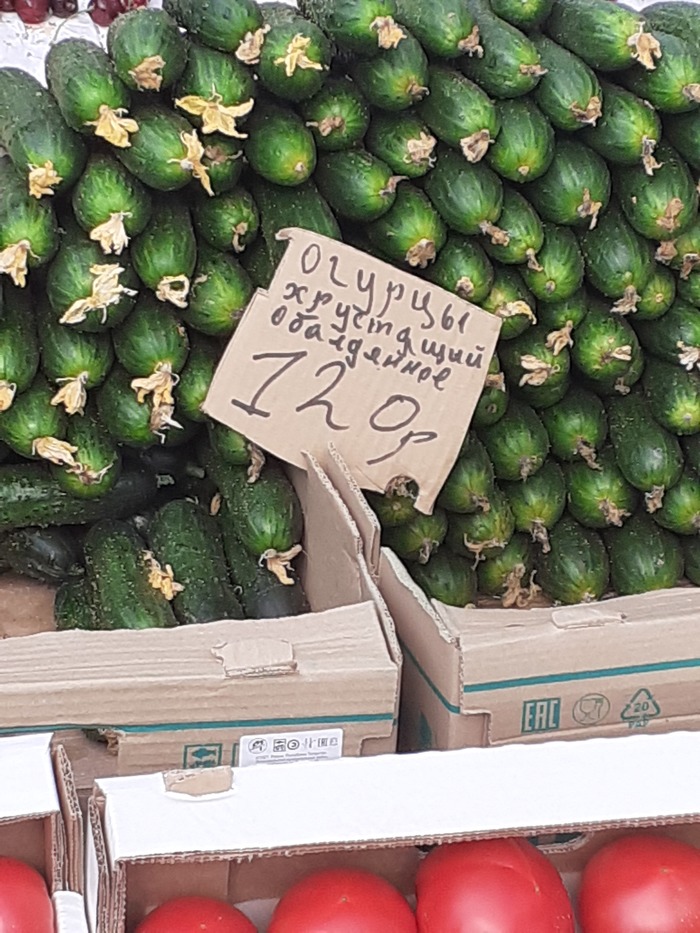 Огурцы
хрустящий
обалденное
120р
EAC
20
PAP